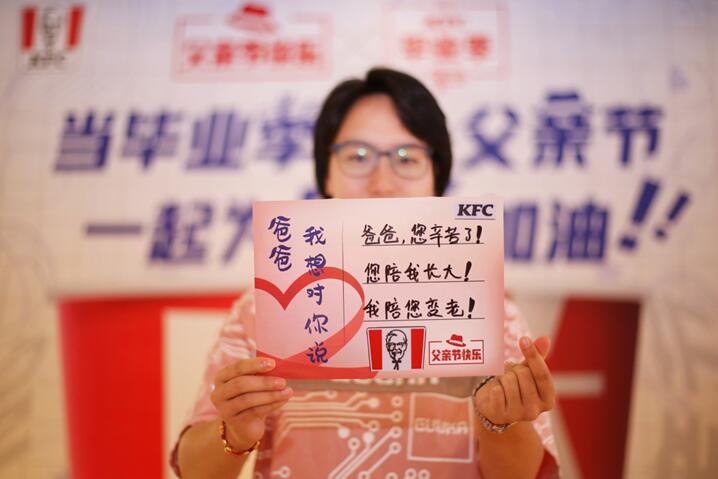 KFC
父亲节快乐
当毕业季 父亲节
一起为 加油!!
KFC
爸爸
我想对你说
爸爸,您辛苦了!
您陪我长大!
我陪您变老!
父亲节快乐